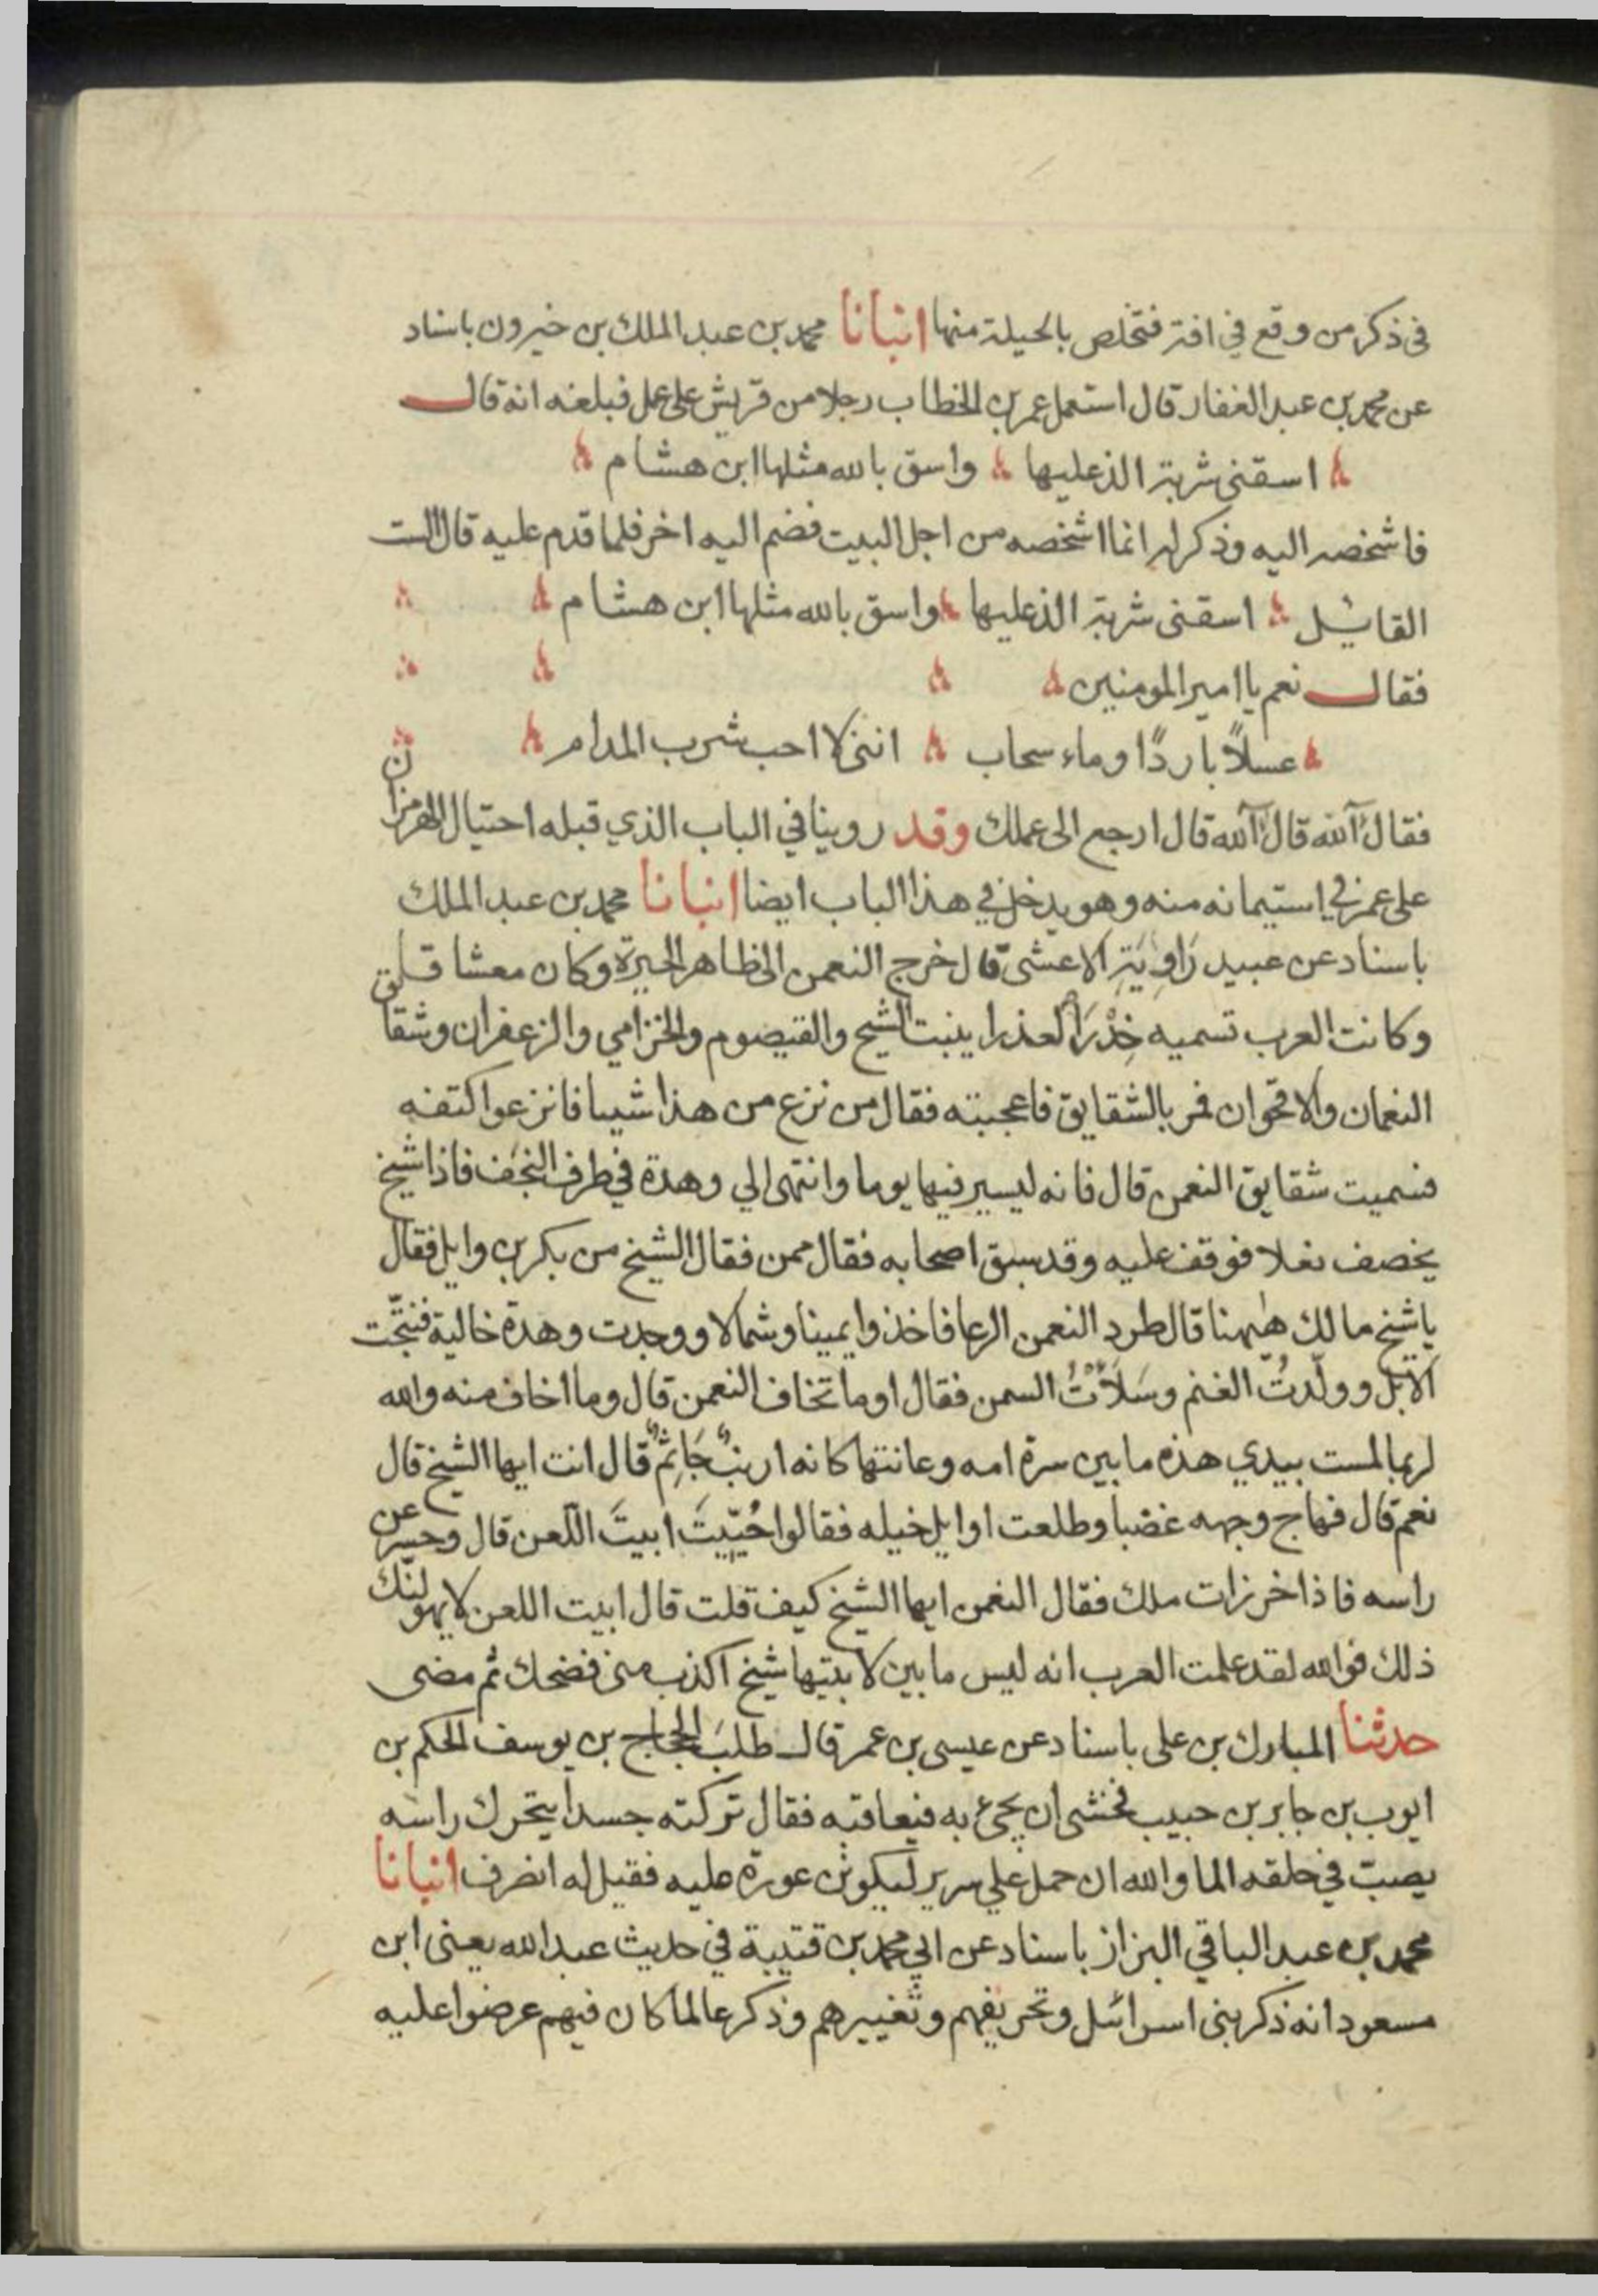 في ذكر من وقع في افة فتخلص بالحيلة منها انبانا محمد بن عبد الملك بن خيرون باسناد
عن محمد بن عبد الغفار قال استعمل عمر بن الخطاب رجلا من قريش على عمل فبلغه انه قال
اسقني شربة الذ عليها واسق بالله مثلها ابن هشام
فاشخصه اليه وذكر له انما اشخصه من اجل البيت فضم اليه اخر فلما قدم عليه قال الست
القائيل اسقني شربة الذ عليها واسق بالله مثلها ابن هشام
فقال نعم يا امير المومنين
عسلاً باردًا وماء سحاب انني لا احب شرب المدام
فقال آلله قال آلله قال ارجع الى عملك وقد روينا في الباب الذي قبله احتيال الهرمزان
على عمر في استيمانه منه وهو يدخل في هذا الباب ايضا انبانا محمد بن عبد الملك
باسناد عن عبيد رَاوِيَةِ الاعشى قال خرج النعمن الى ظاهر الحيرة وكان معشا قلق
وكانت العرب تسميه خِدْرَ العذرا ينبت الشيح والقيصوم والخزامي والزعفران وشقا
النعمان والاقحوان فمر بالشقايق فاعجبته فقال من نزع من هذا شيا فانزعوا كتفه
فسميت شقايق النعمن قال فانه ليسير فيها يوما وانتهى الي وهدة في طرف النجف فاذا شيخ
يخصف نعلا فوقف عليه وقد سبق اصحابه فقال ممن فقال الشيخ من بكر بن وايل فقال
يا شيخ ما لك هٰهنا قال طرد النعمن الرعا فاخذوا يمينا وشمالا ووجدت وهدة خالية فنتّجت
الابل وولّدتُ الغنم وسَلَأْتُ السمن فقال اوما تخاف النعمن قال وما اخاف منه والله
لربما لمست بيدي هذه ما بين سرة امه وعانتها كانه ارنبٌ جَاثِمٌ قال انت ايها الشيخ قال
نعم قال فهاج وجهه غضبا وطلعت اوايل خيله فقالوا حُيِّيتَ ابيتَ اللعن قال وحسر عن
راسه فاذا خرزات ملك فقال النعمن ايها الشيخ كيف قلت قال ابيت اللعن لا يهولنّك
ذلك فوالله لقد علمت العرب انه ليس ما بين لابتيها شيخ اكذب مني فضحك ثم مضى
حدثنا المبارك بن على باسناد عن عيسى بن عمر قال طلبَ الحجاج بن يوسف الحكم بن
ايوب بن جابر بن حبيب فخشى ان يجئ به فيعاقبه فقال تركته جسدا يتحرك راسه
يصبّ في حلقه الما والله ان حمل علي سرير ليكونن عورة عليه فقيل له انصرف انبانا
محمد بن عبد الباقي البزاز باسناد عن ابي محمد بن قتيبة في حديث عبد الله يعني ابن
مسعود انه ذكر بني اسرائيل وتحريفهم وتغييرهم وذكر عالما كان فيهم عرضوا عليه